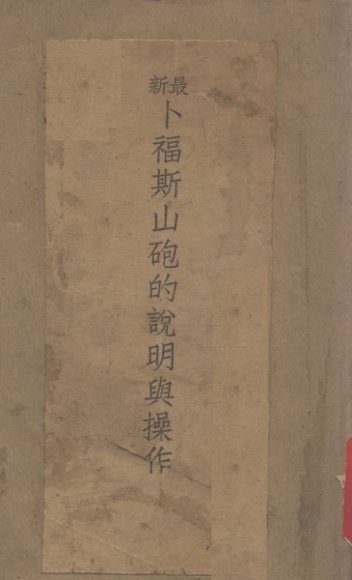 最新
卜福斯山砲的說明與操作